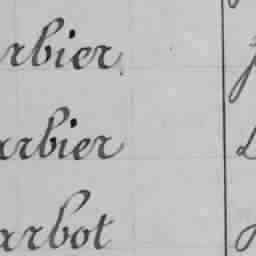 rbier
arbier
arbot